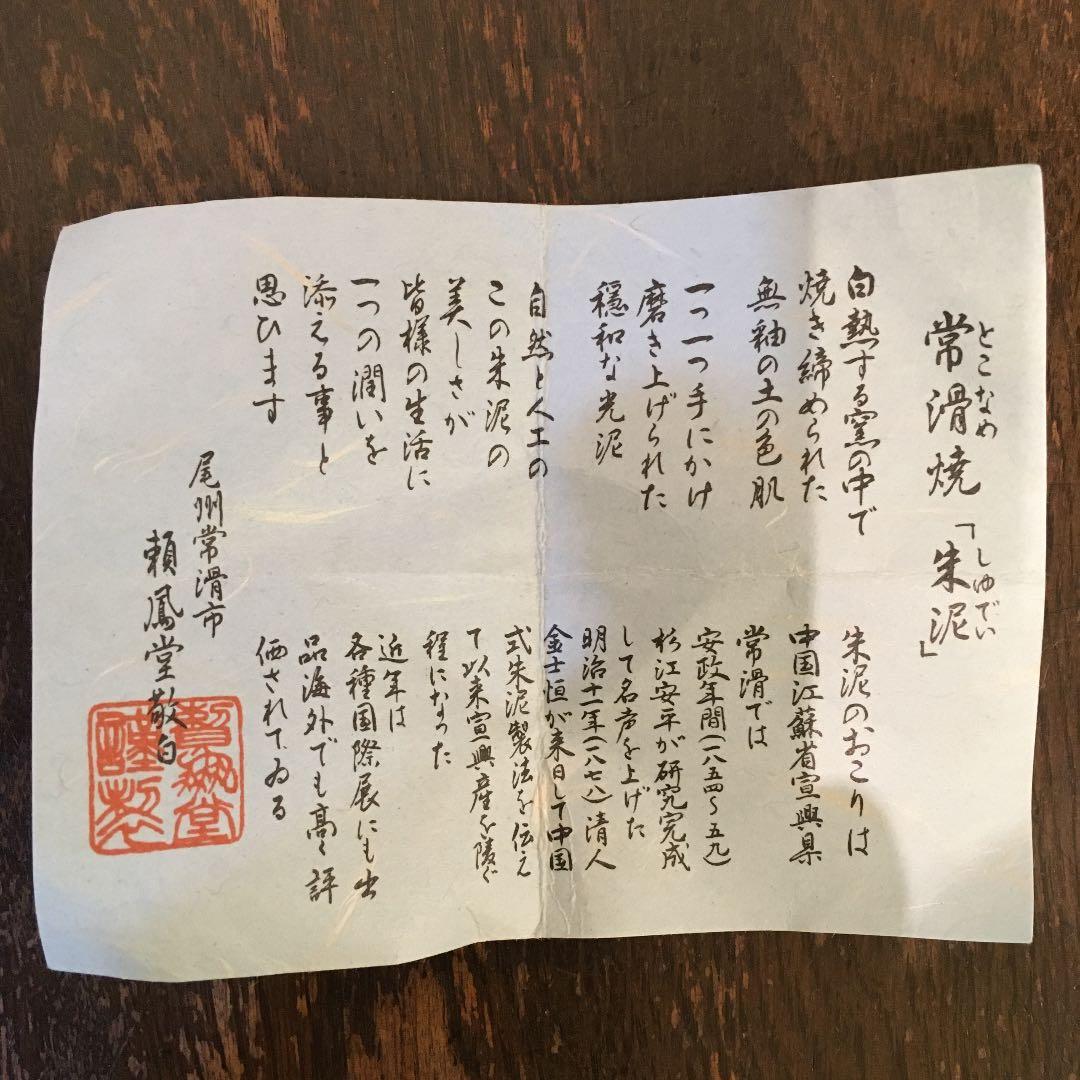 とこなめ しゅでい
常滑焼「朱泥」
白熱する窯の中で
焼き締められた
無釉の土の色肌
一つ一つ手にかけ
磨き上げられた
穏和な光泥
自然と人工の
この朱泥の
美しさが
皆様の生活に
一つの潤いを
添える事と
思ひます
朱泥のおこりは
中国江蘇省宣興県
常滑では
安政年間(一八五四〜五九)
杉江安平が研究完成
して名声を上げた
明治十一年(一八七八)清人
金士恒が来日して中国
式朱泥製法を伝え
て以来宣興産を凌ぐ
程になった
近年は
各種国際展にも出
品海外でも高く評
価されてゐる
尾州常滑市
頼鳳堂敬白
頼鳳堂
謹製